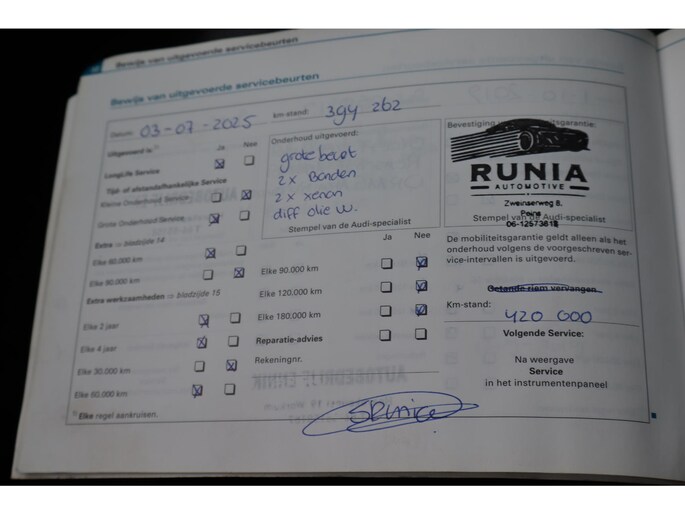 Bewijs van uitgevoerde servicebeurten
Bewijs van uitgevoerde servicebeurten
Datum: 03-07-2025
km-stand: 394 262
Uitgevoerd is:
Ja Nee
LongLife Service
Tijd- of afstandafhankelijke Service
Kleine Onderhoud Service
Grote Onderhoud Service
Extra ⇒ bladzijde 14
Elke 60.000 km
Elke 90.000 km
Extra werkzaamheden ⇒ bladzijde 15
Elke 2 jaar
Elke 4 jaar
Elke 30.000 km
Elke 60.000 km
Elke regel aankruisen.
Onderhoud uitgevoerd:
grote beurt
2x Banden
2x xenon
diff olie w.
Stempel van de Audi-specialist
Ja Nee
Elke 90.000 km
Elke 120.000 km
Elke 180.000 km
Reparatie-advies
Rekeningnr.
Bevestiging mobiliteitsgarantie:
RUNIA
AUTOMOTIVE
Stempel van de Audi-specialist
De mobiliteitsgarantie geldt alleen als het
onderhoud volgens de voorgeschreven ser-
vice-intervallen is uitgevoerd.
Getande riem vervangen
Km-stand:
420 000
Volgende Service:
Na weergave
Service
in het instrumentenpaneel